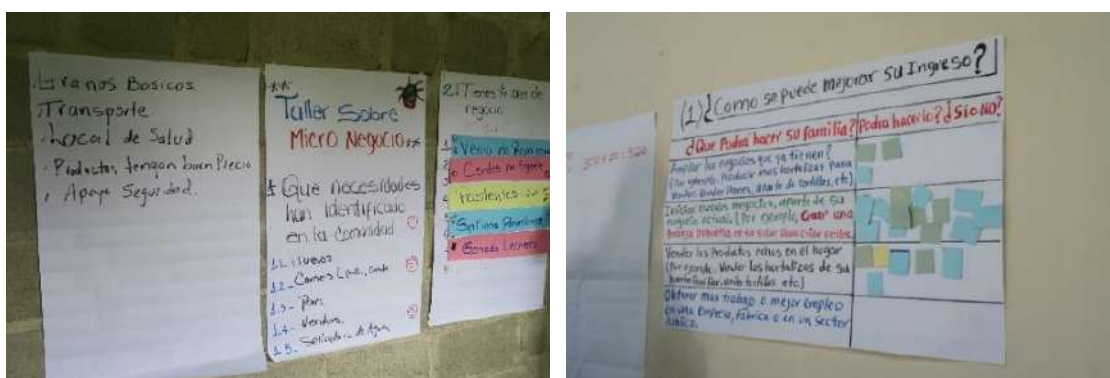 Granos Basicos
Transporte
Local de Salud
Productos tengan buen Precio
Apoyo Seguridad.
Taller Sobre
Micro Negocio
Que necesidades
han identificado
en la Comunidad
1.1- Huevos
1.2- Carnes
1.3- Pan
1.4- Verdura
1.5-
2.) Tienes
negocio
1
Venta de
Ganado Lechero
(1) ¿Como se puede mejorar su Ingreso?
¿Que Podria hacer su familia?
Podria hacerlo? ¿Si o No?
Ampliar los negocios que ya tienen?
(Por ejemplo, Producir mas hortalizas para
vender, vender Panes, aparte de tortillas, etc)
Iniciar nuevos negocios, aparte de su
negocio actual. (Por ejemplo, Crear una
granja pequeña en su solar para criar cerdos.
Vender los Productos echos en el hogar
(Por ejemplo. Vender las hortalizas de su
huerto familiar, venta tortillas etc)
Obtener mas trabajo o mejor Empleo
en una Empresa, fabrica o en un sector